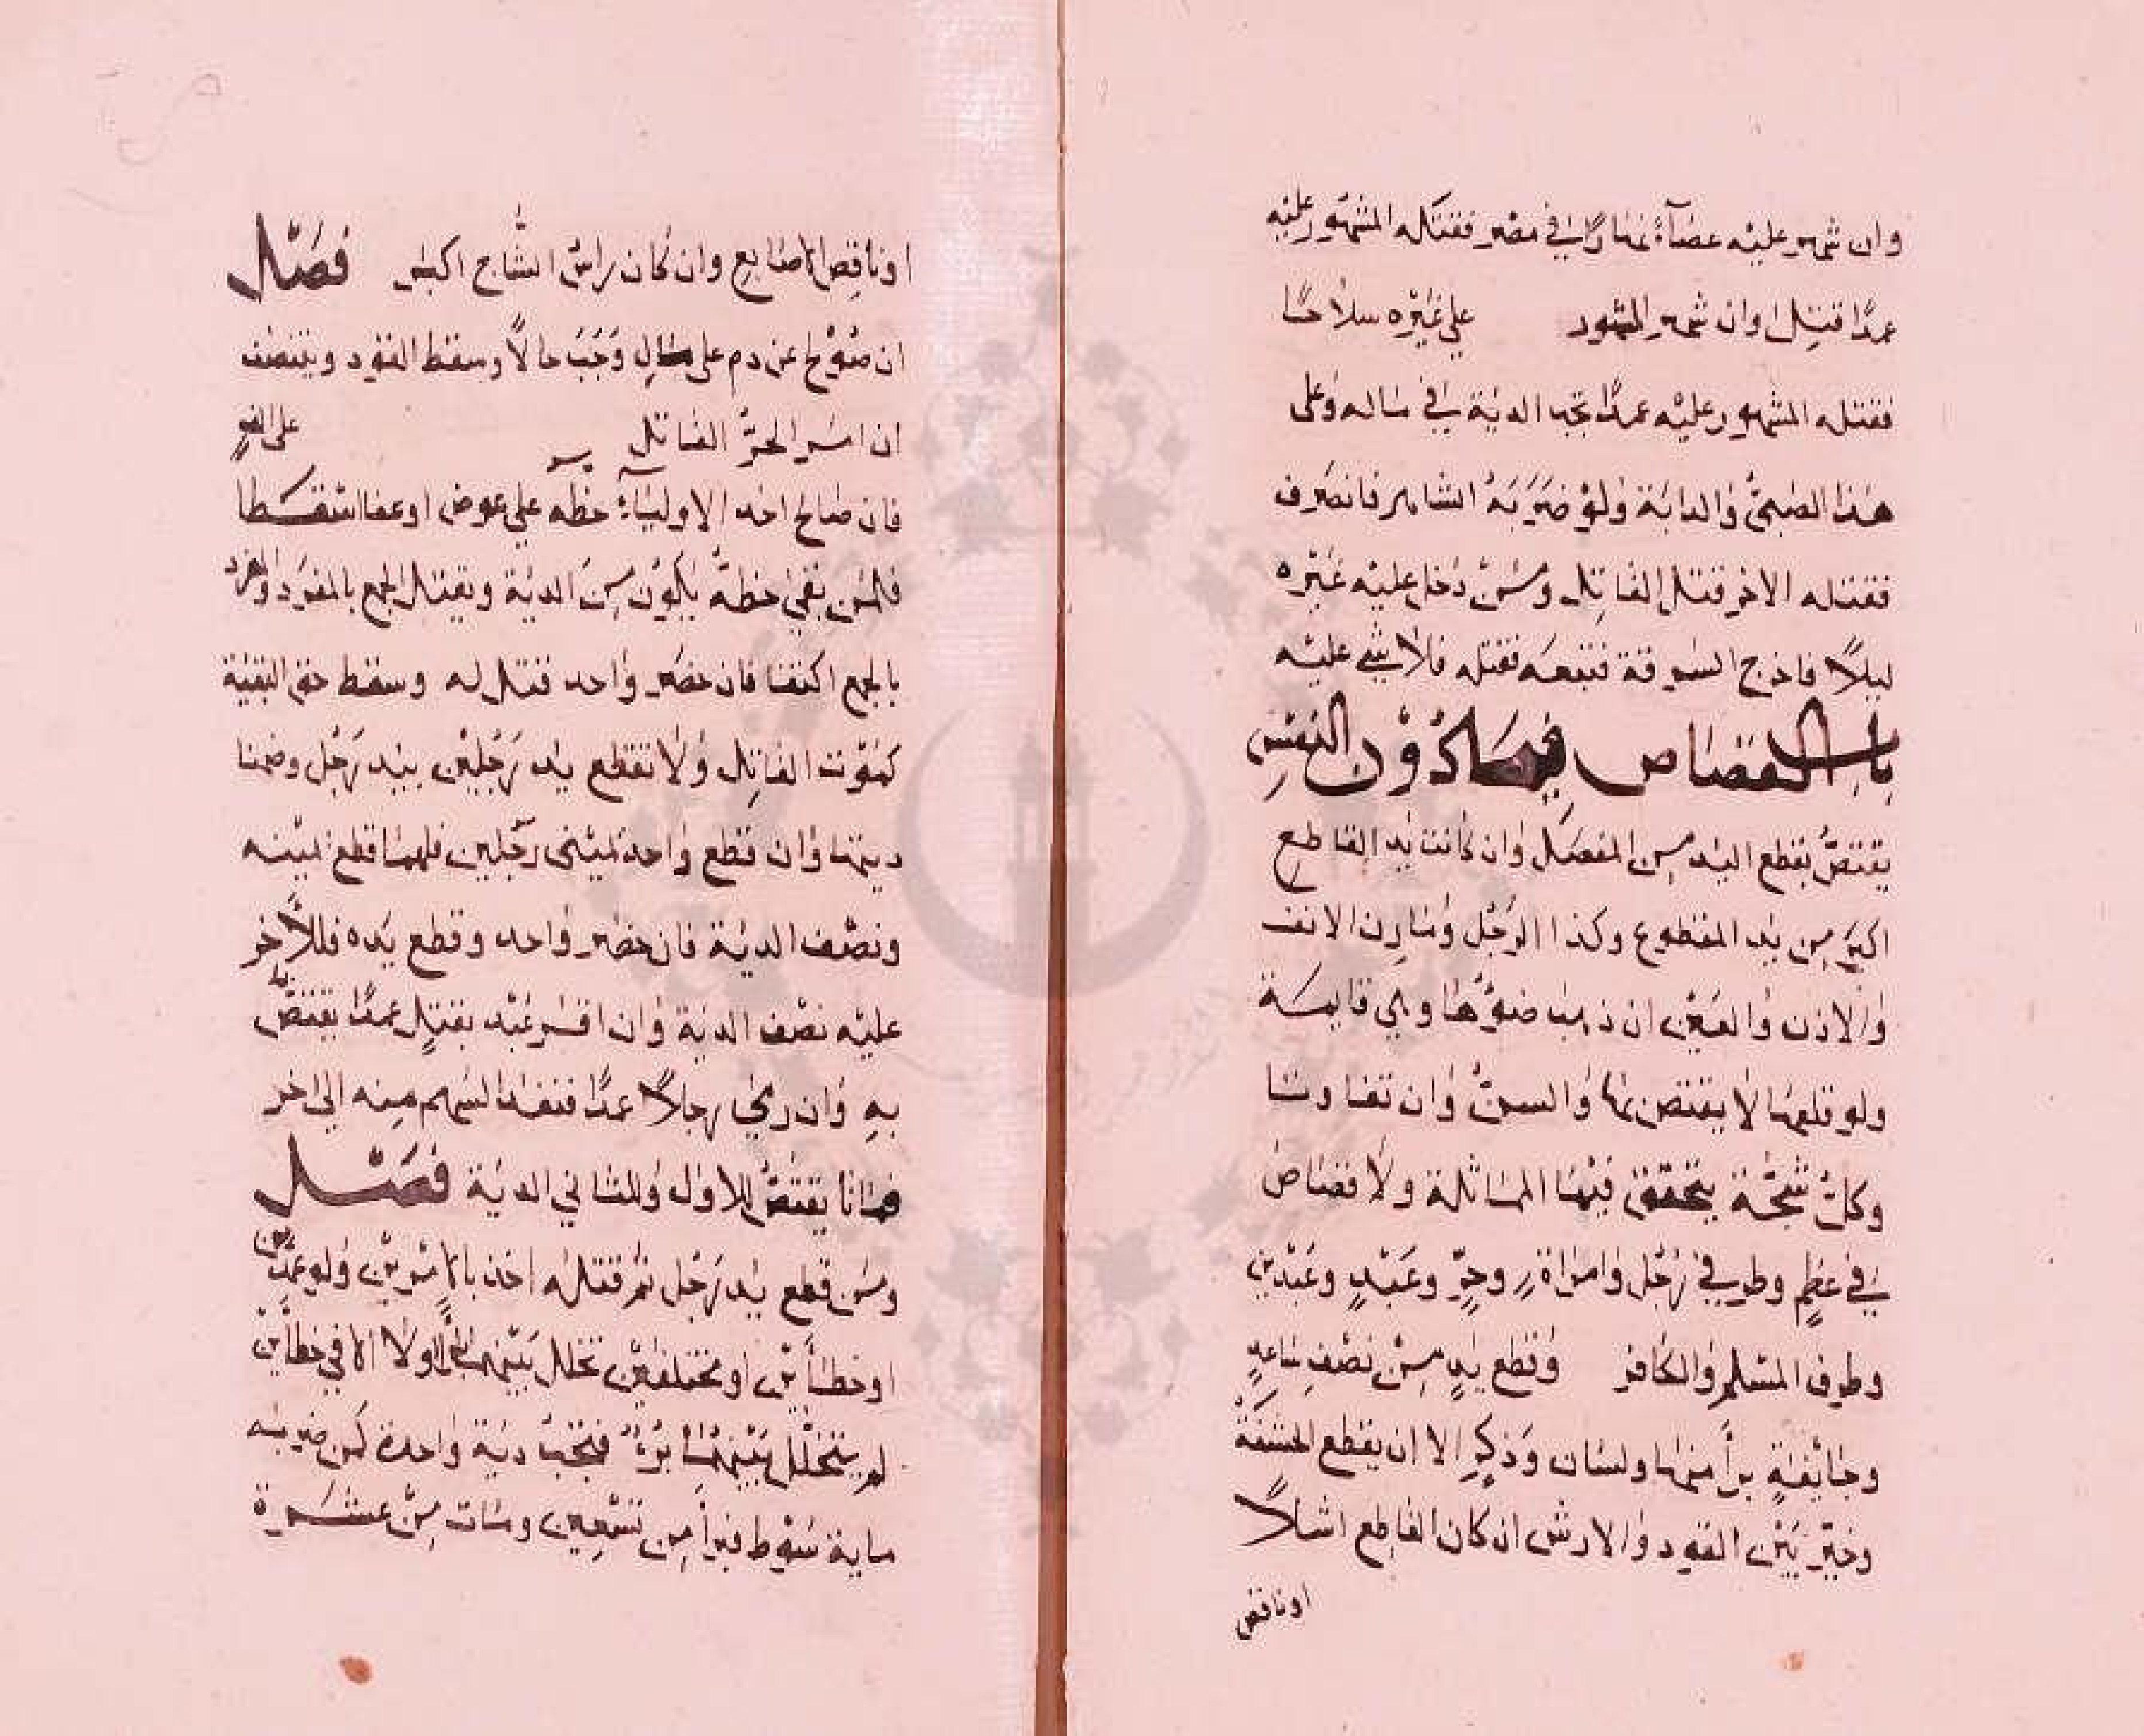 وان شهر عليه عصاً نهارًا في مصر فقتله المشهور عليه
عمدًا قتل وان شهر المجنون على غيره سلاحًا
فقتله المشهور عليه عمدًا تجب الدية في ماله وعلى
هذا الصبيُّ والدابة ولو ضربَهُ الشاهر فانصرف
فقتله الاخر قتل القاتل ومن دخل عليه غيره
ليلًا فاخرج السرقة فتبعه فقتله فلا شي عليه
باب القصاص فيما دون النفس
يقتصُّ بقطع اليد من المفصل وان كانت يد القاطع
اكبر من يد المقطوع وكذا الرجل ومارن الانف
والاذن والعين ان ذهب ضوُّها وهي قايمة
ولو قلعها لا يقتص بها والسنُّ وان تفاوتتا
وكلُّ شجَّة يتحقق فيها المماثلة ولا قصاص
في عظمٍ وطرفي رجل وامراةٍ وحرٍّ وعبدٍ وعبدين
وطرف المسلم والكافر وقطع يدٍ من نصف ساعدٍ
وجايفةٍ برأ منها ولسان وذكرٍ الا ان يقطع الحشفة
وخيِّر بين القود والارش ان كان القاطع اشلًا
اوناقص
اوناقص الاصابع وان كان راس الشاج اكبر فصل
ان صولح عن دم على مالٍ وجب حالًا وسقط القود ويتنصف
ان امر الحرُّ القاتل
فان صالح احد الاولياء حظه على عوض او عفا سقطا
فلمن بقي حظهُ يكون من الدية ويقتل الجمع بالمفرد والفرد
بالجمع اكتفا فان حضر واحد قتل له وسقط حق البقية
كموت القاتل ولا تقطع يد رجلين بيد رجل وضمنا
ديتها وان قطع واحد يميني رجلين فلهما قطع يمينه
ونصف الدية فان حضر واحد وقطع يده فللآخر
عليه نصف الدية وان اقر عبد بقتلٍ عمدًا يقتصُّ
به وان رمى رجلًا عمدًا فنفذ السهم منه الى اخر
فماتا يقتصُّ للاول وللثاني الدية فصل
ومن قطع يد رجل ثم قتله اخذ بالامرين ولو عمدين
او خطأين او مختلفين تخلل بينهما برأ اولا الا في خطأين
لم يتخلل بينهما برؤٌ فتجب دية واحدة كمن ضربه
ماية سوط فبرأ من تسعين ومات من عشرة